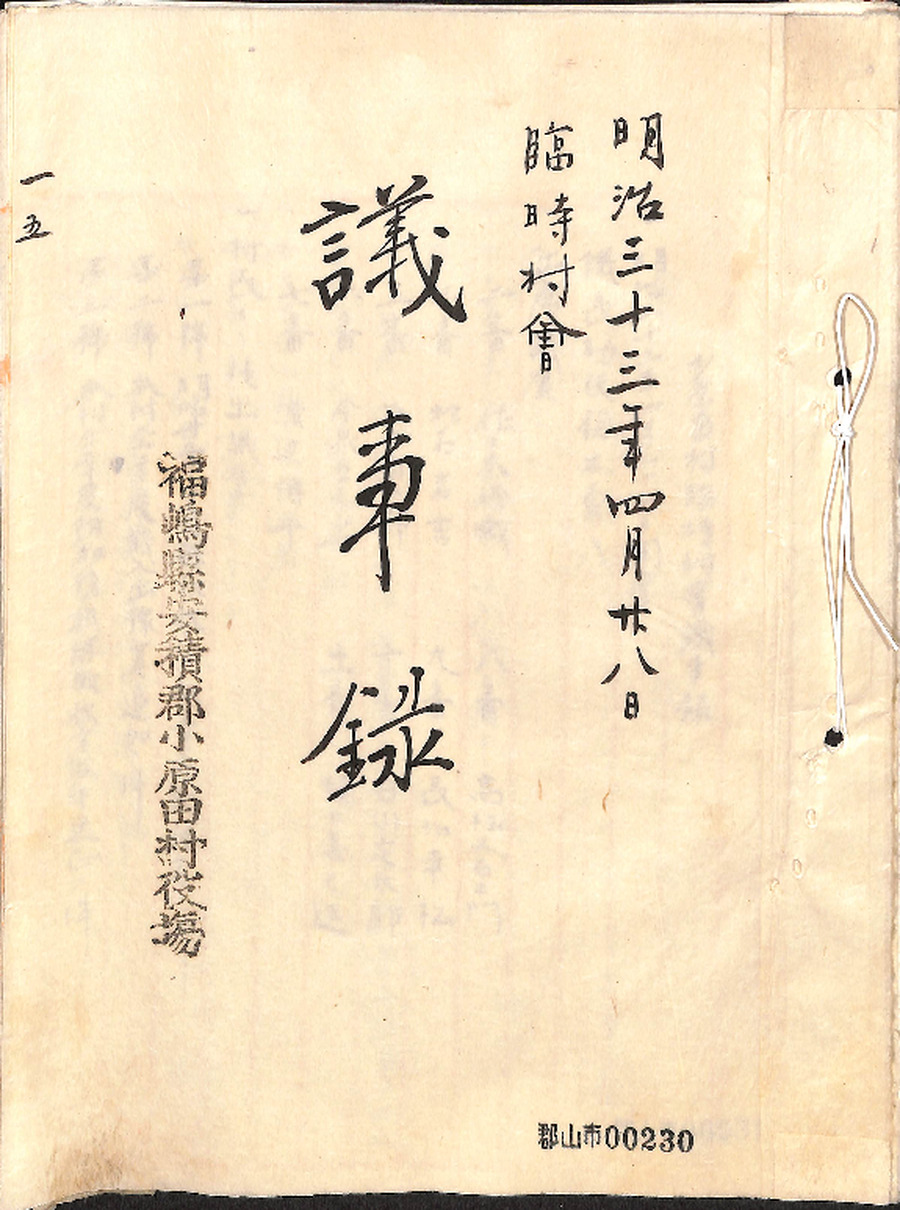 明治三十三年四月廿八日
臨時村會
議事録
福嶋縣安積郡小原田村役塲
一五
郡山市00230